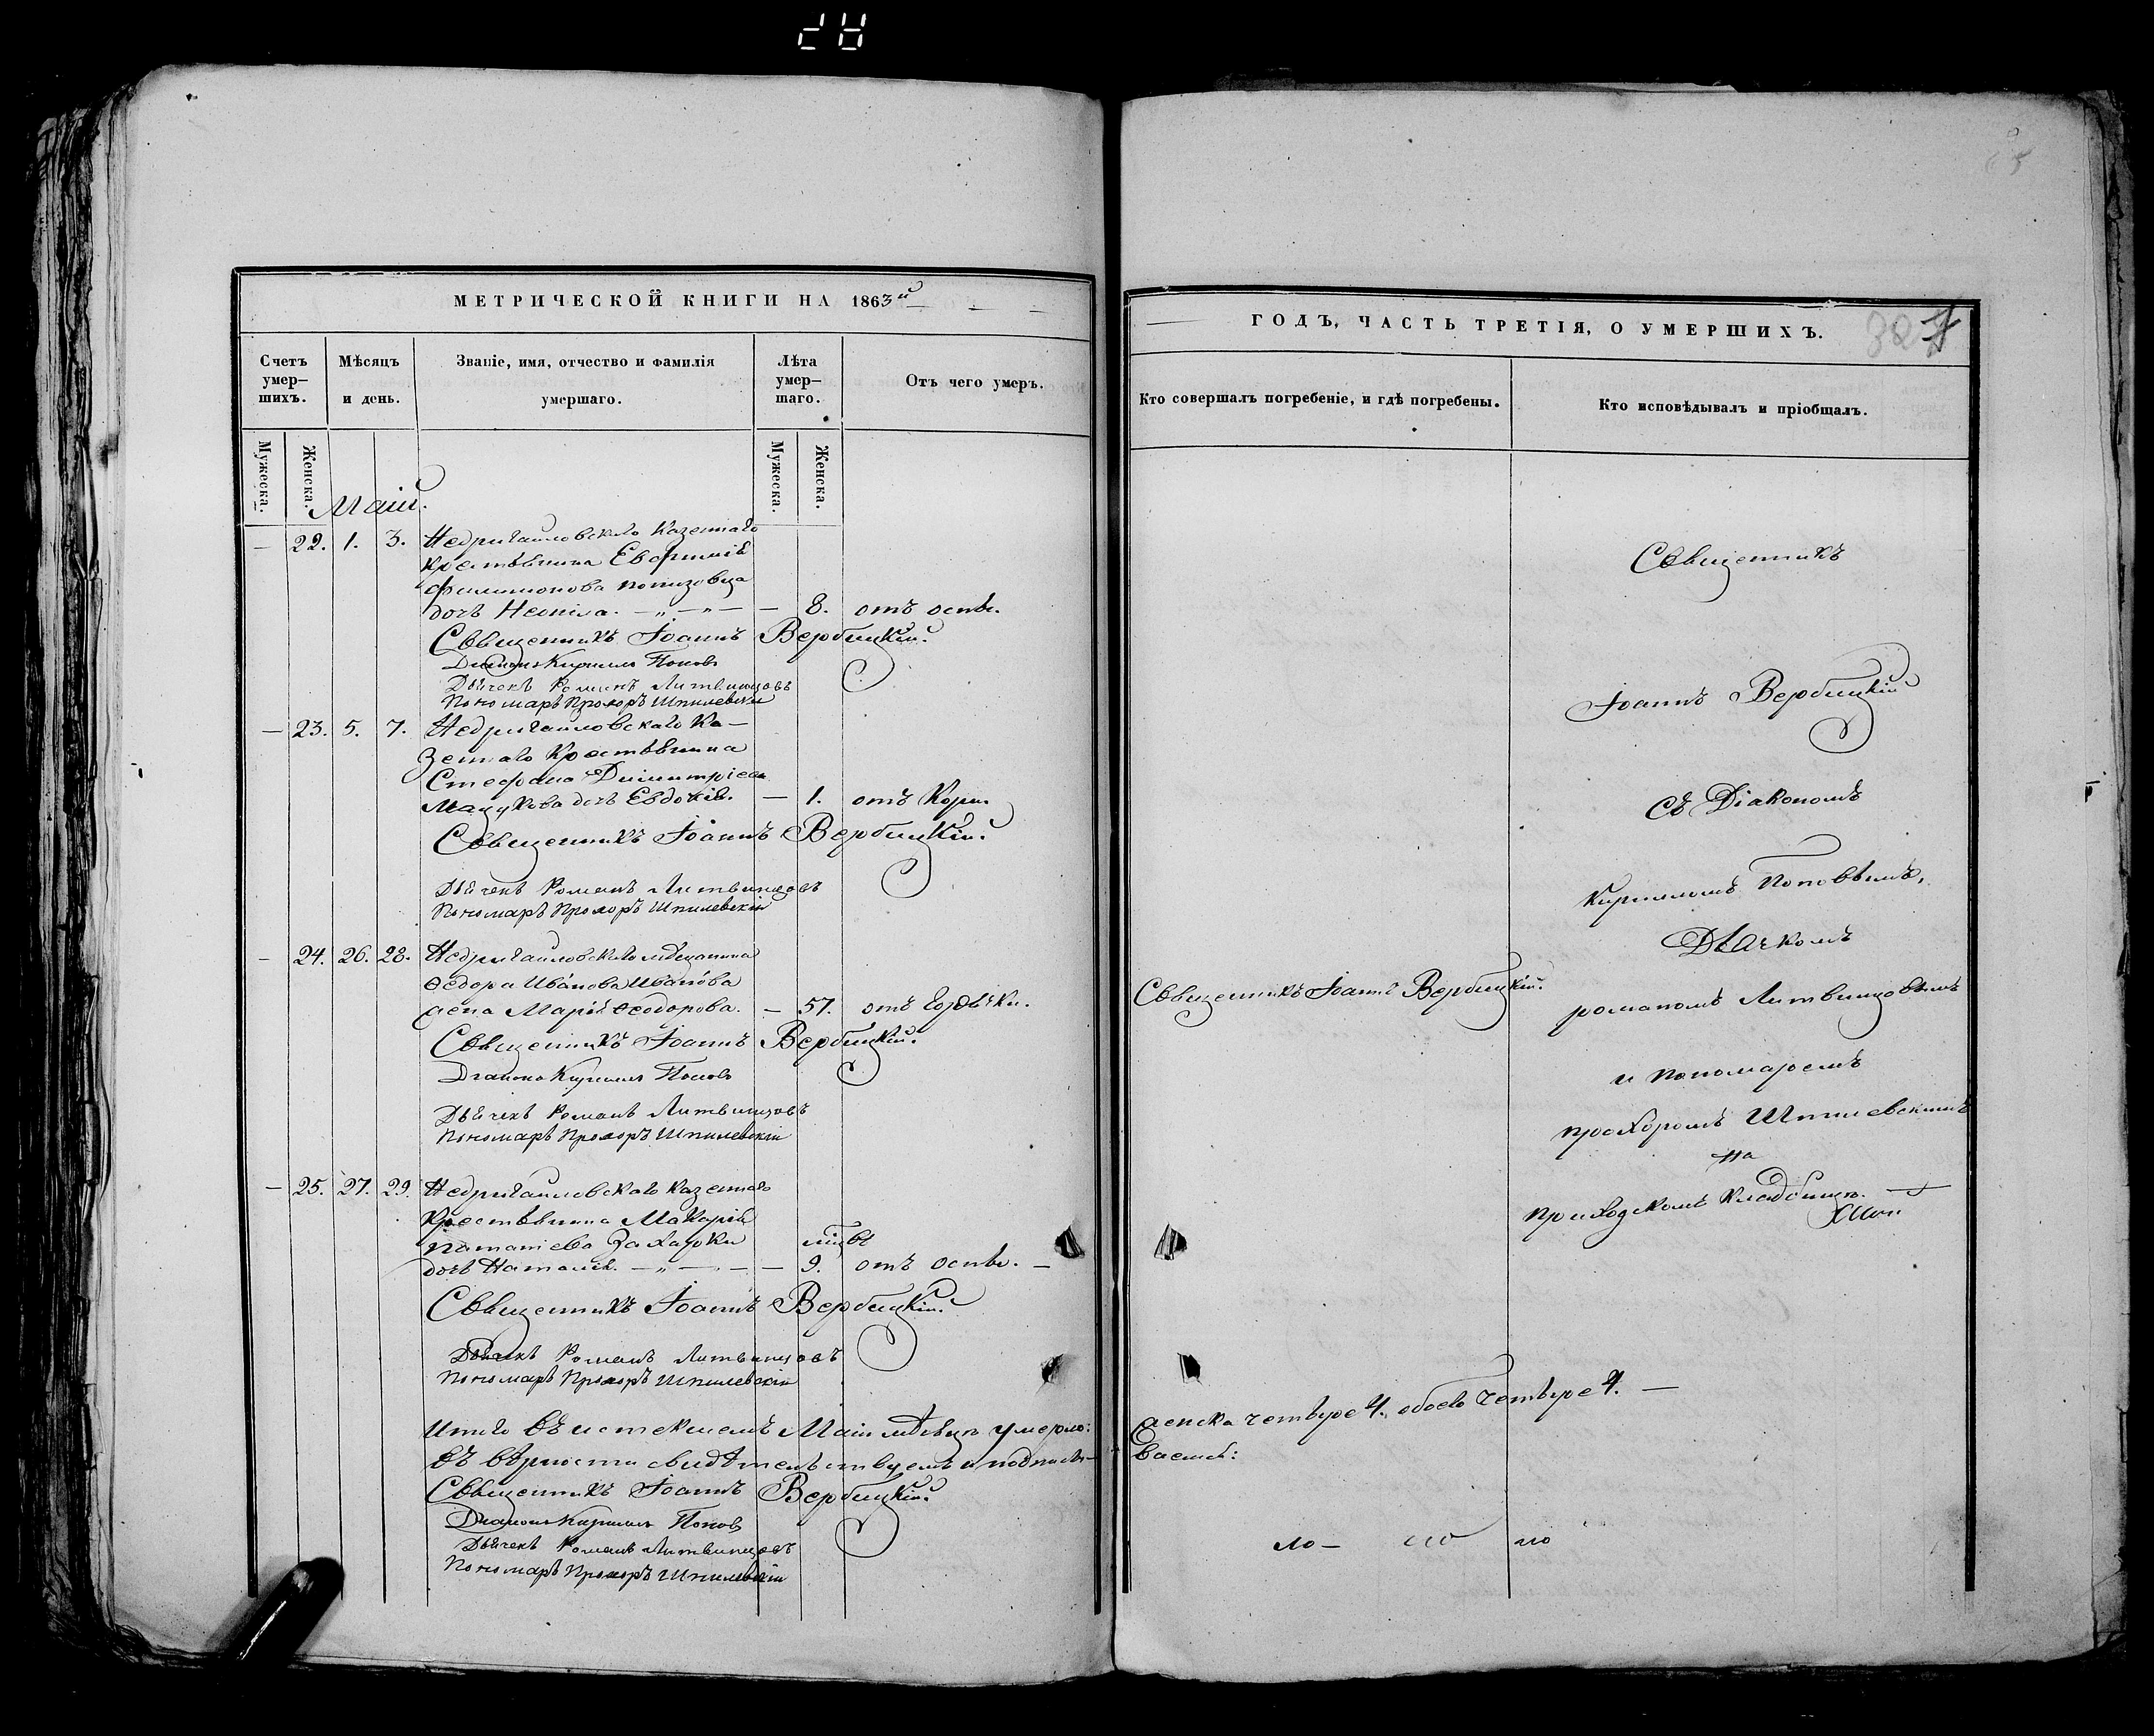 МЕТРИЧЕСКОЙ КНИГИ НА 1863й
Счетъ умер-шихъ.
Мѣсяцъ и день.
Званіе, имя, отчество и фамилія умершаго.
Лѣта умер-шаго.
Отъ чего умеръ.
Мужеска.
Женска.
Мужеска.
Женска.
Маій.
— 22. 1. 3. Недригайловскаго Казеннаго
Крестьянина Евфимія
Филимонова
дочь Неонила. — „ — „ — — 8. отъ оспы.
Священникъ Іоаннъ Вербицкій.
Діаконъ Кириллъ Поповъ
Дьячекъ Романъ Литвинцовъ
Пономарь Прохоръ Шпилевскій
— 23. 5. 7. Недригайловскаго Ка-
зеннаго Крестьянина
Стефана Димитріева
дочь Евдокія. — 1. отъ Кори.
Священникъ Іоаннъ Вербицкій.
Дьячекъ Романъ Литвинцовъ
Пономарь Прохоръ Шпилевскій
— 24. 26. 28. Недригайловскаго мѣщанина
Ѳедора Иванова Иванова
жена Марія Ѳеодорова. — 57. отъ Горячки.
Священникъ Іоаннъ Вербицкій.
Діаконъ Кириллъ Поповъ
Дьячекъ Романъ Литвинцовъ
Пономарь Прохоръ Шпилевскій
— 25. 27. 29. Недригайловскаго казеннаго
Крестьянина Макарія
дочь Наталія. — „ — — 9. отъ оспы. —
Священникъ Іоаннъ Вербицкій.
Дьячекъ Романъ Литвинцовъ
Пономарь Прохоръ Шпилевскій
Итого въ истекшемъ Маіи мѣсяцѣ умерло:
въ вѣрности свидѣтельствуемъ и подписы-
Священникъ Іоаннъ Вербицкій.
Діаконъ Кириллъ Поповъ
Дьячекъ Романъ Литвинцовъ
Пономарь Прохоръ Шпилевскій
ГОДЪ, ЧАСТЬ ТРЕТІЯ, О УМЕРШИХЪ.
Кто совершалъ погребеніе, и гдѣ погребены.
Кто исповѣдывалъ и пріобщалъ.
Священникъ
Іоаннъ Вербицкій
съ Діакономъ
Кирилломъ Поповымъ,
Дьячкомъ
Священникъ Іоаннъ Вербицкій.
романомъ Литвинцовымъ
и пономаремъ
прохоромъ Шпилевскимъ
на
приходскомъ кладбищѣ. —
женска четыре 4. обоего четыре 4. —
ваемся: